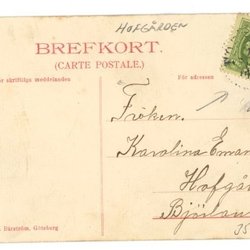 HOFGÅRDEN
BREFKORT.
(CARTE POSTALE.)
För skriftliga meddelanden
För adressen
Fröken.
Karolina Eman
Hofgår
Björlan
35
Bärström, Göteborg